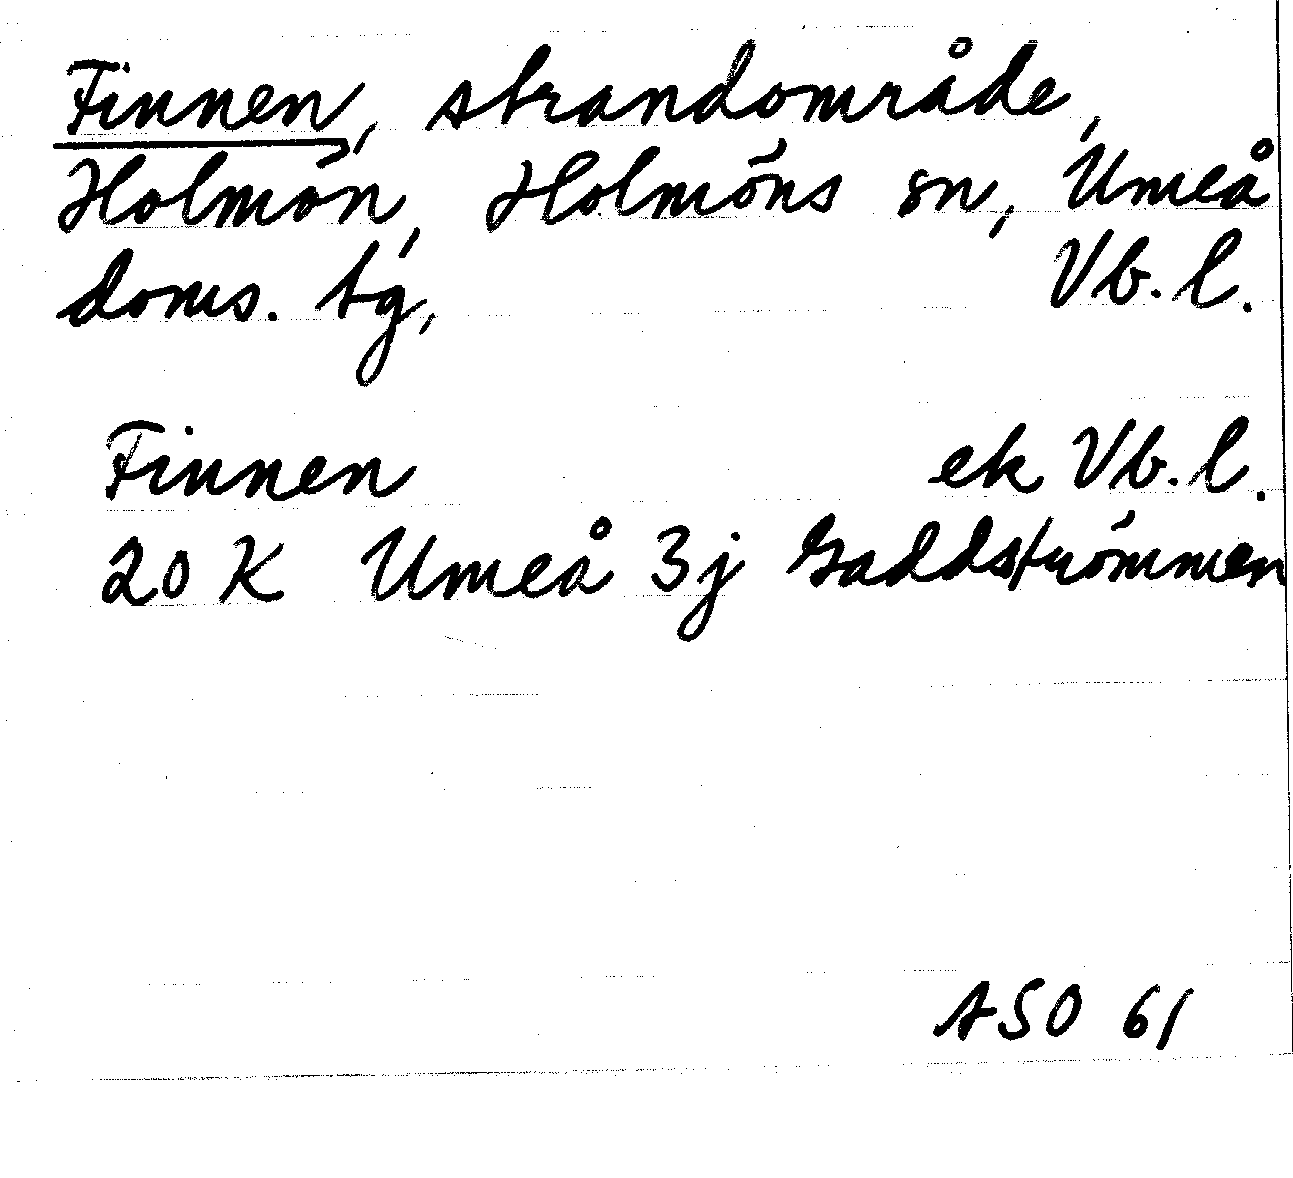 Finnen, strandområde,
Holmön, Holmöns sn, Umeå
doms. tg, Vb. l.
Finnen ek Vb. l.
20 K Umeå 3j Gaddströmmen
ASO 61